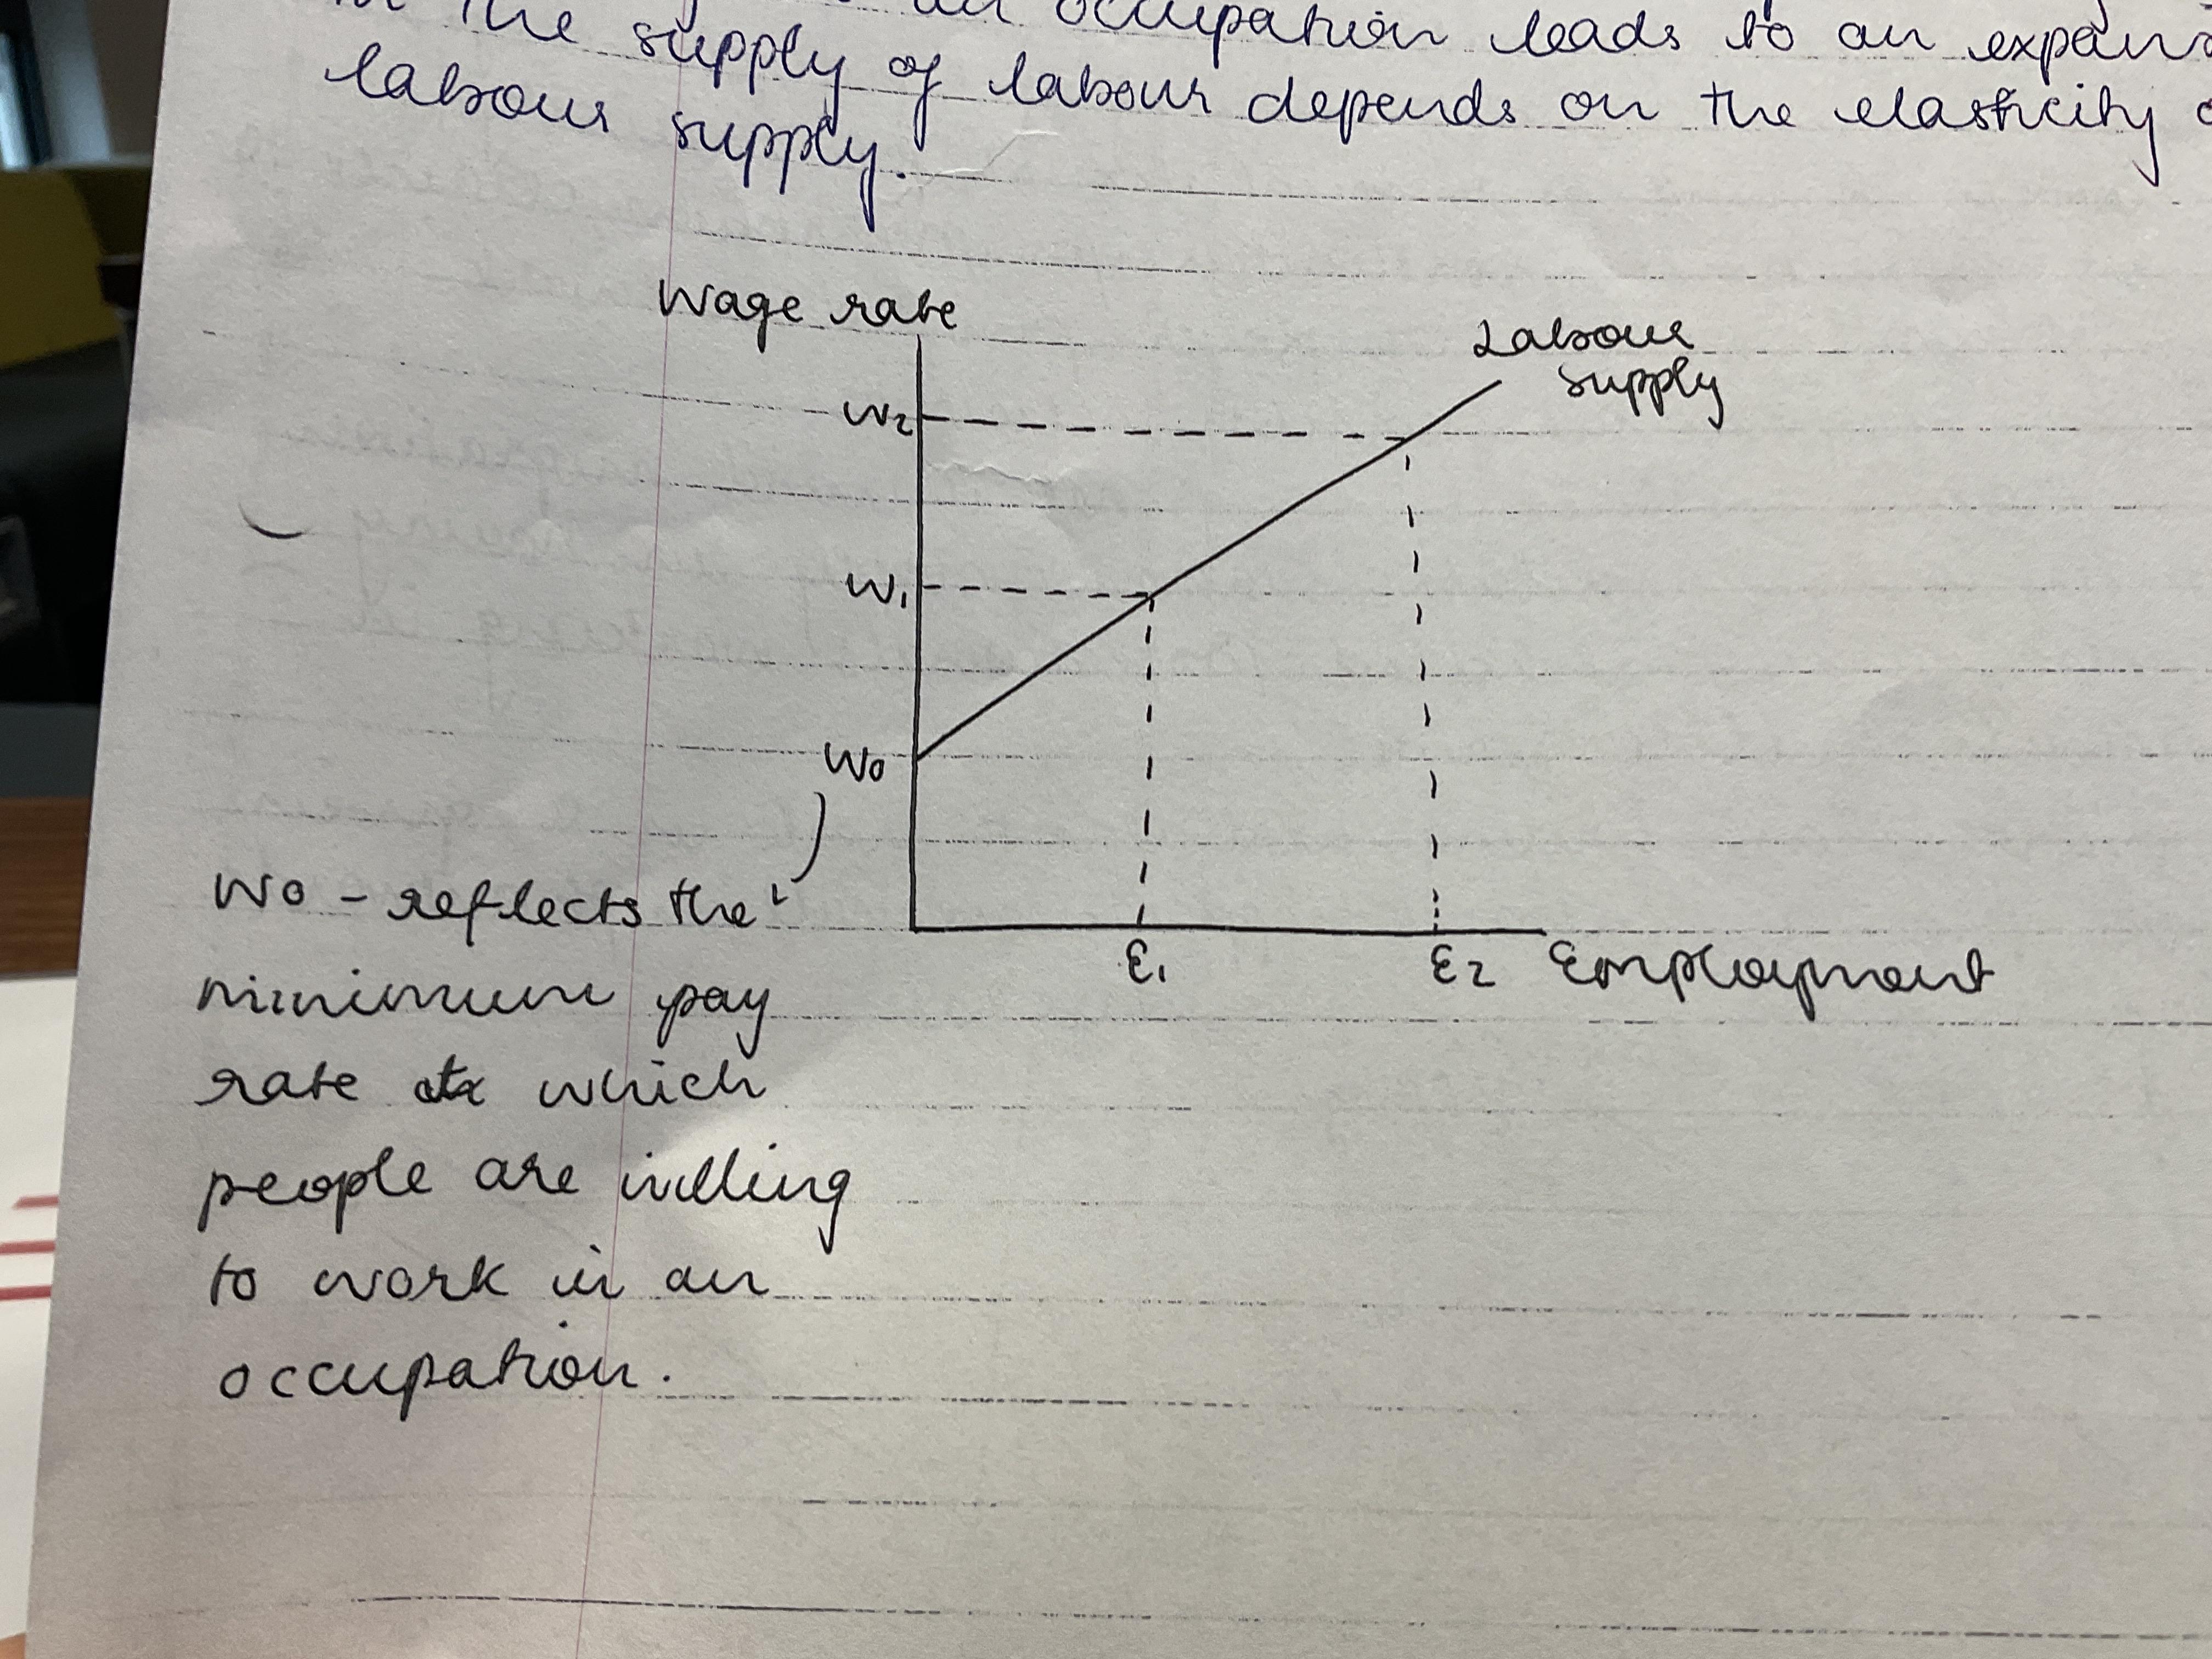 the supply an occupation leads to an
labour supply of labour depends on the elasticity
supply.
Wage rate
Labour
supply
W2
W1
W0
E1 E2 Employment
W0 - reflects the
minimum pay
rate at which
people are willing
to work in an
occupation.